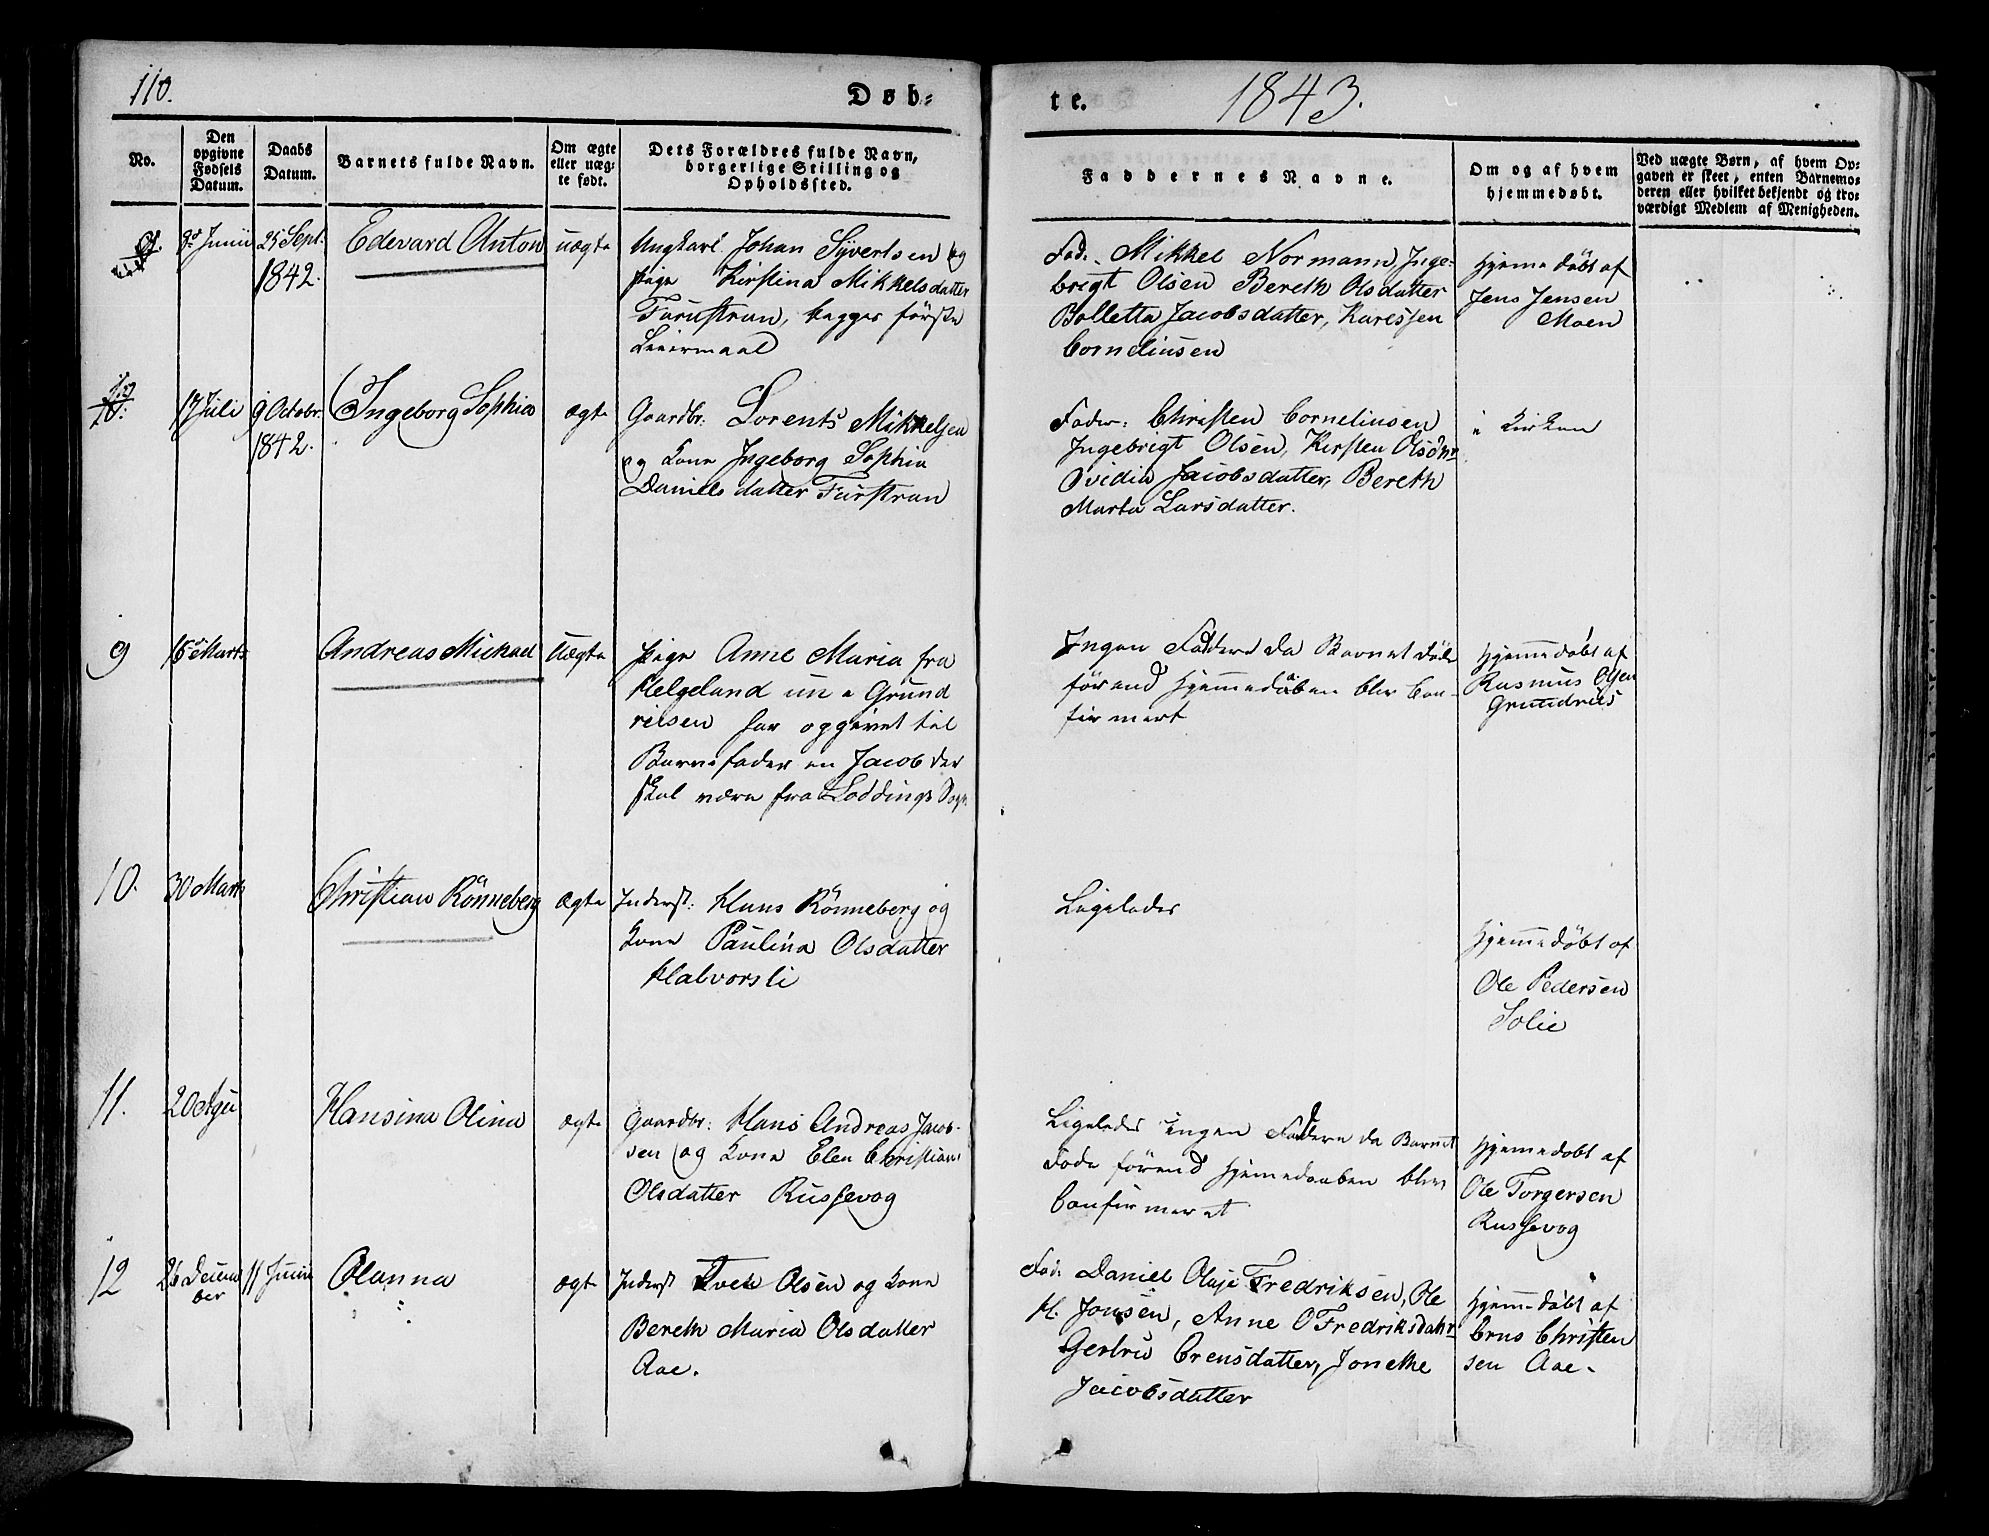 110.
Døb-
te.
1843.
No.
Den
opgivne
Fødsels
Datum.
Daabs
Datum.
Barnets fulde Navn.
Om ægte
eller uæg-
te født.
Dets Forældres fulde Navn,
borgerlige Stilling og
Opholdssted.
Faddernes Navne.
Om og af hvem
hjemmedøbt.
Ved uægte Børn, af hvem Op-
gaven er skeet, enten Barnemo-
deren eller hvilket bekjendt og tro-
værdigt Medlem af Menigheden.
Junii
25 Sept.
1842.
Edevard Anton
uægte
Ungkarl Johan Syvertsen og
Pige Kirstina Mikkelsdatter
Furustran, begges første
Leiermaal
Fad. Mikkel Normann, Inge-
brigt Olsen Bereth Olsdatter
Bolletta Jacobsdatter,
Corneliusen
Hjemedøbt af
Jens Jensen
Moen
17 Juli
9 Octobr.
1842.
Ingeborg Sophia
ægte
Gaardbr. Lorents Mikkelsen
og Kone Ingeborg Sophia
Danielsdatter Furstran
Fader: Christen Corneliusen
Ingebrigt Olsen, Kirsten Olsdtr
Ovidia Jacobsdatter, Bereth
Marta Larsdatter.
i Kirken
9
15de Marts
Andreas Mickael
Uægte
Pige Anne Maria fra
Helgeland un e Grund
reisen har opgivet til
Barnefader en Jacob der
skal være fra Loddings Sogn
Ingen Faddere da Barnet døde
førend Hjemmedaaben blev Con-
firmert
Hjemmedøbt af
Rasmus Olsen
Grundreis
10.
30 Marts
Christian Rönneberg
Ægte
Inderst: Hans Rönneberg og
Kone Paulina Olsdatter
Halvorsli
Ligeledes
Hjemmedöbt af
Ole Pedersen
Solie
11.
20
Hansina Olina
ægte
Gaardbr: Hans Andreas Jacob-
sen og Kone Elen Christian
Olsdatter Russevog
Ligeledes ingen Faddere da Barnet
døde førend Hjemedaaben blev
Confirmeret
Hjemedøbt af
Ole Torgersen
Russevog
12
Decem
ber
11 Junii
Olanna
ægte
Inderst Sven Olsen og Kone
Bereth Maria Olsdatter
Aae.
Fad. Daniel Olaje Fredriksen, Ole
H. Jonsen, Anne O Fredriksdattr
Gertru Crensdatter, Jonethe
Jacobsdatter
Hjemmedøbt af
Crns Christen
sen Aae.